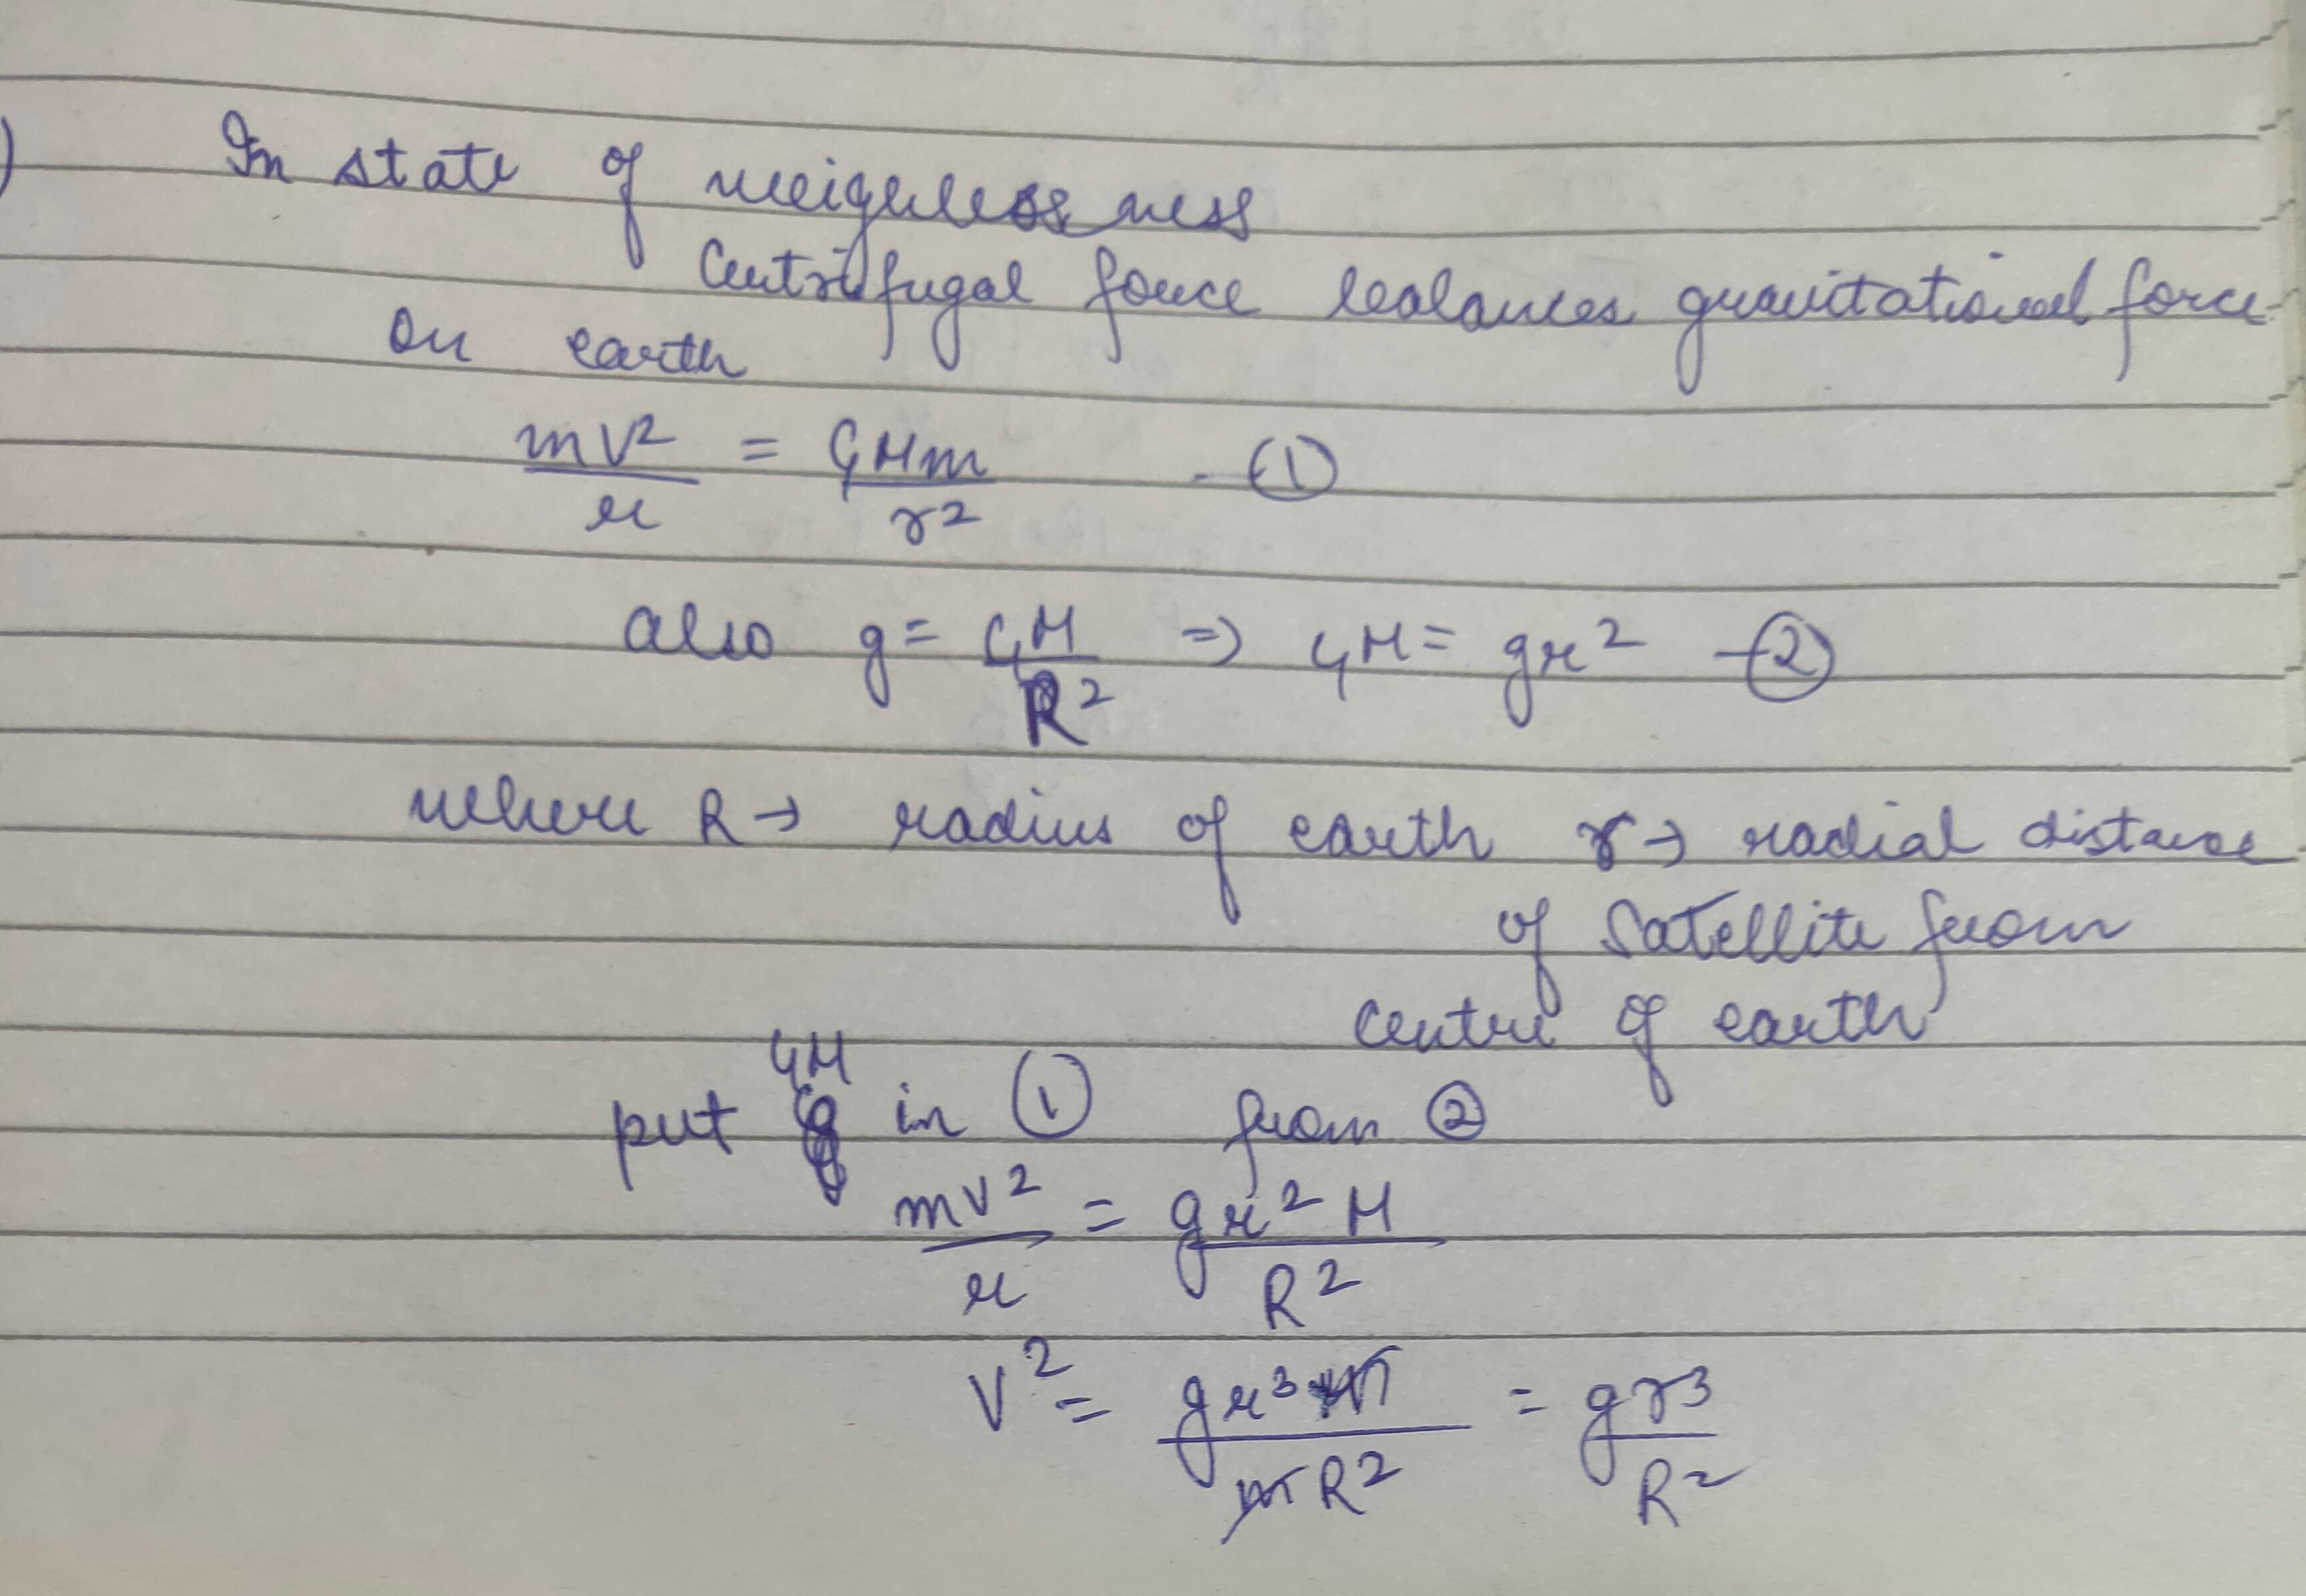 )
In state of weigheless ness
Centrifugal force balances gravitational force
on earth
mv²/r = GMm/r² - ①
also g = GM/R² ⇒ GM = gr² - ②
where R → radius of earth r → radial distance
of Satellite from
centre of earth
GM
put in ① from ②
mv²/r = gr²M/R²
V² = gr³m/mR² = gr³/R²